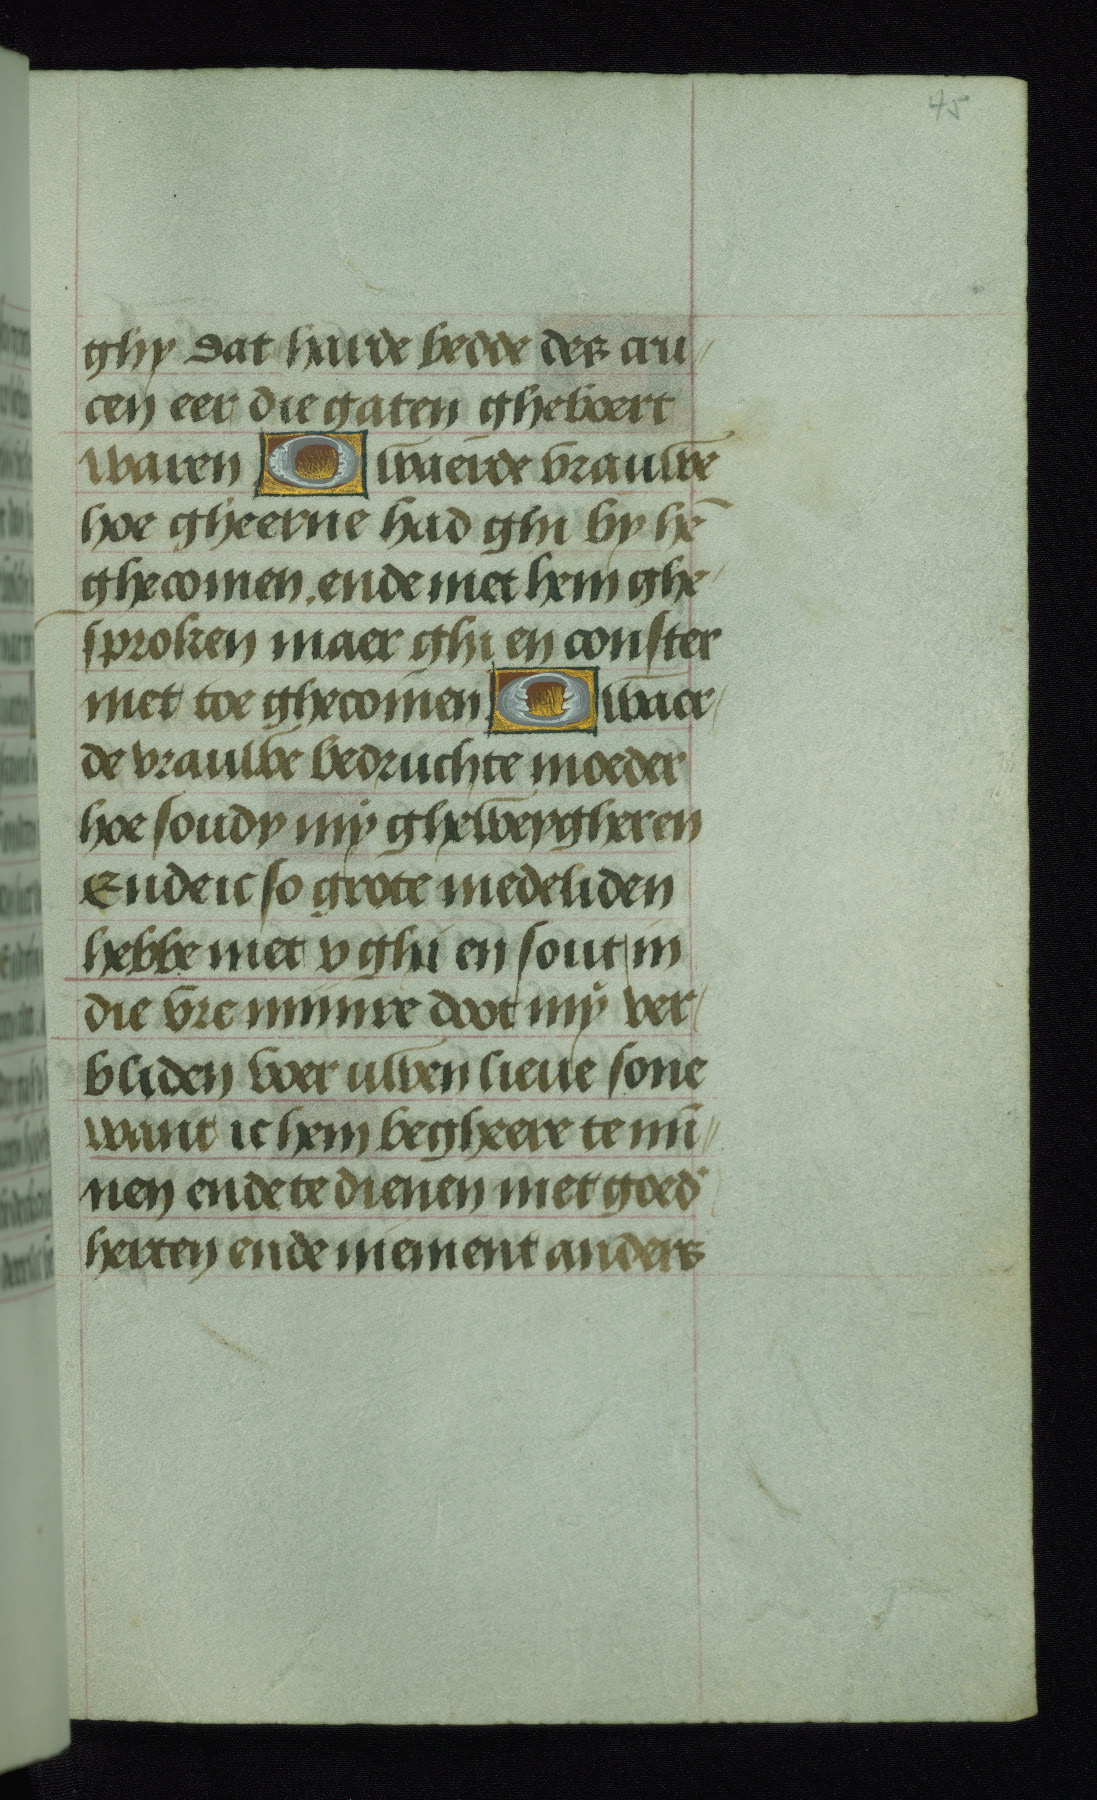 45
ghy dat harde bedde des cru/
cen eer die gaten gheboert
waren O waerde vrauwe
hoe gheerne had ghi by hē
ghecomen. ende met hem ghe/
sproken maer ghi en conster
niet toe ghecomen O waer/
de vrauwe bedruchte moeder
hoe soudy mÿ gheweygheren
Ende ic so grote medeliden
hebbe met v ghi en sout in
die vre mijnre doot mÿ ver/
bliden voer uwen lieue sone
want ic hem begheere te mī//
nen ende te dienen met goed'
herten ende niement anders